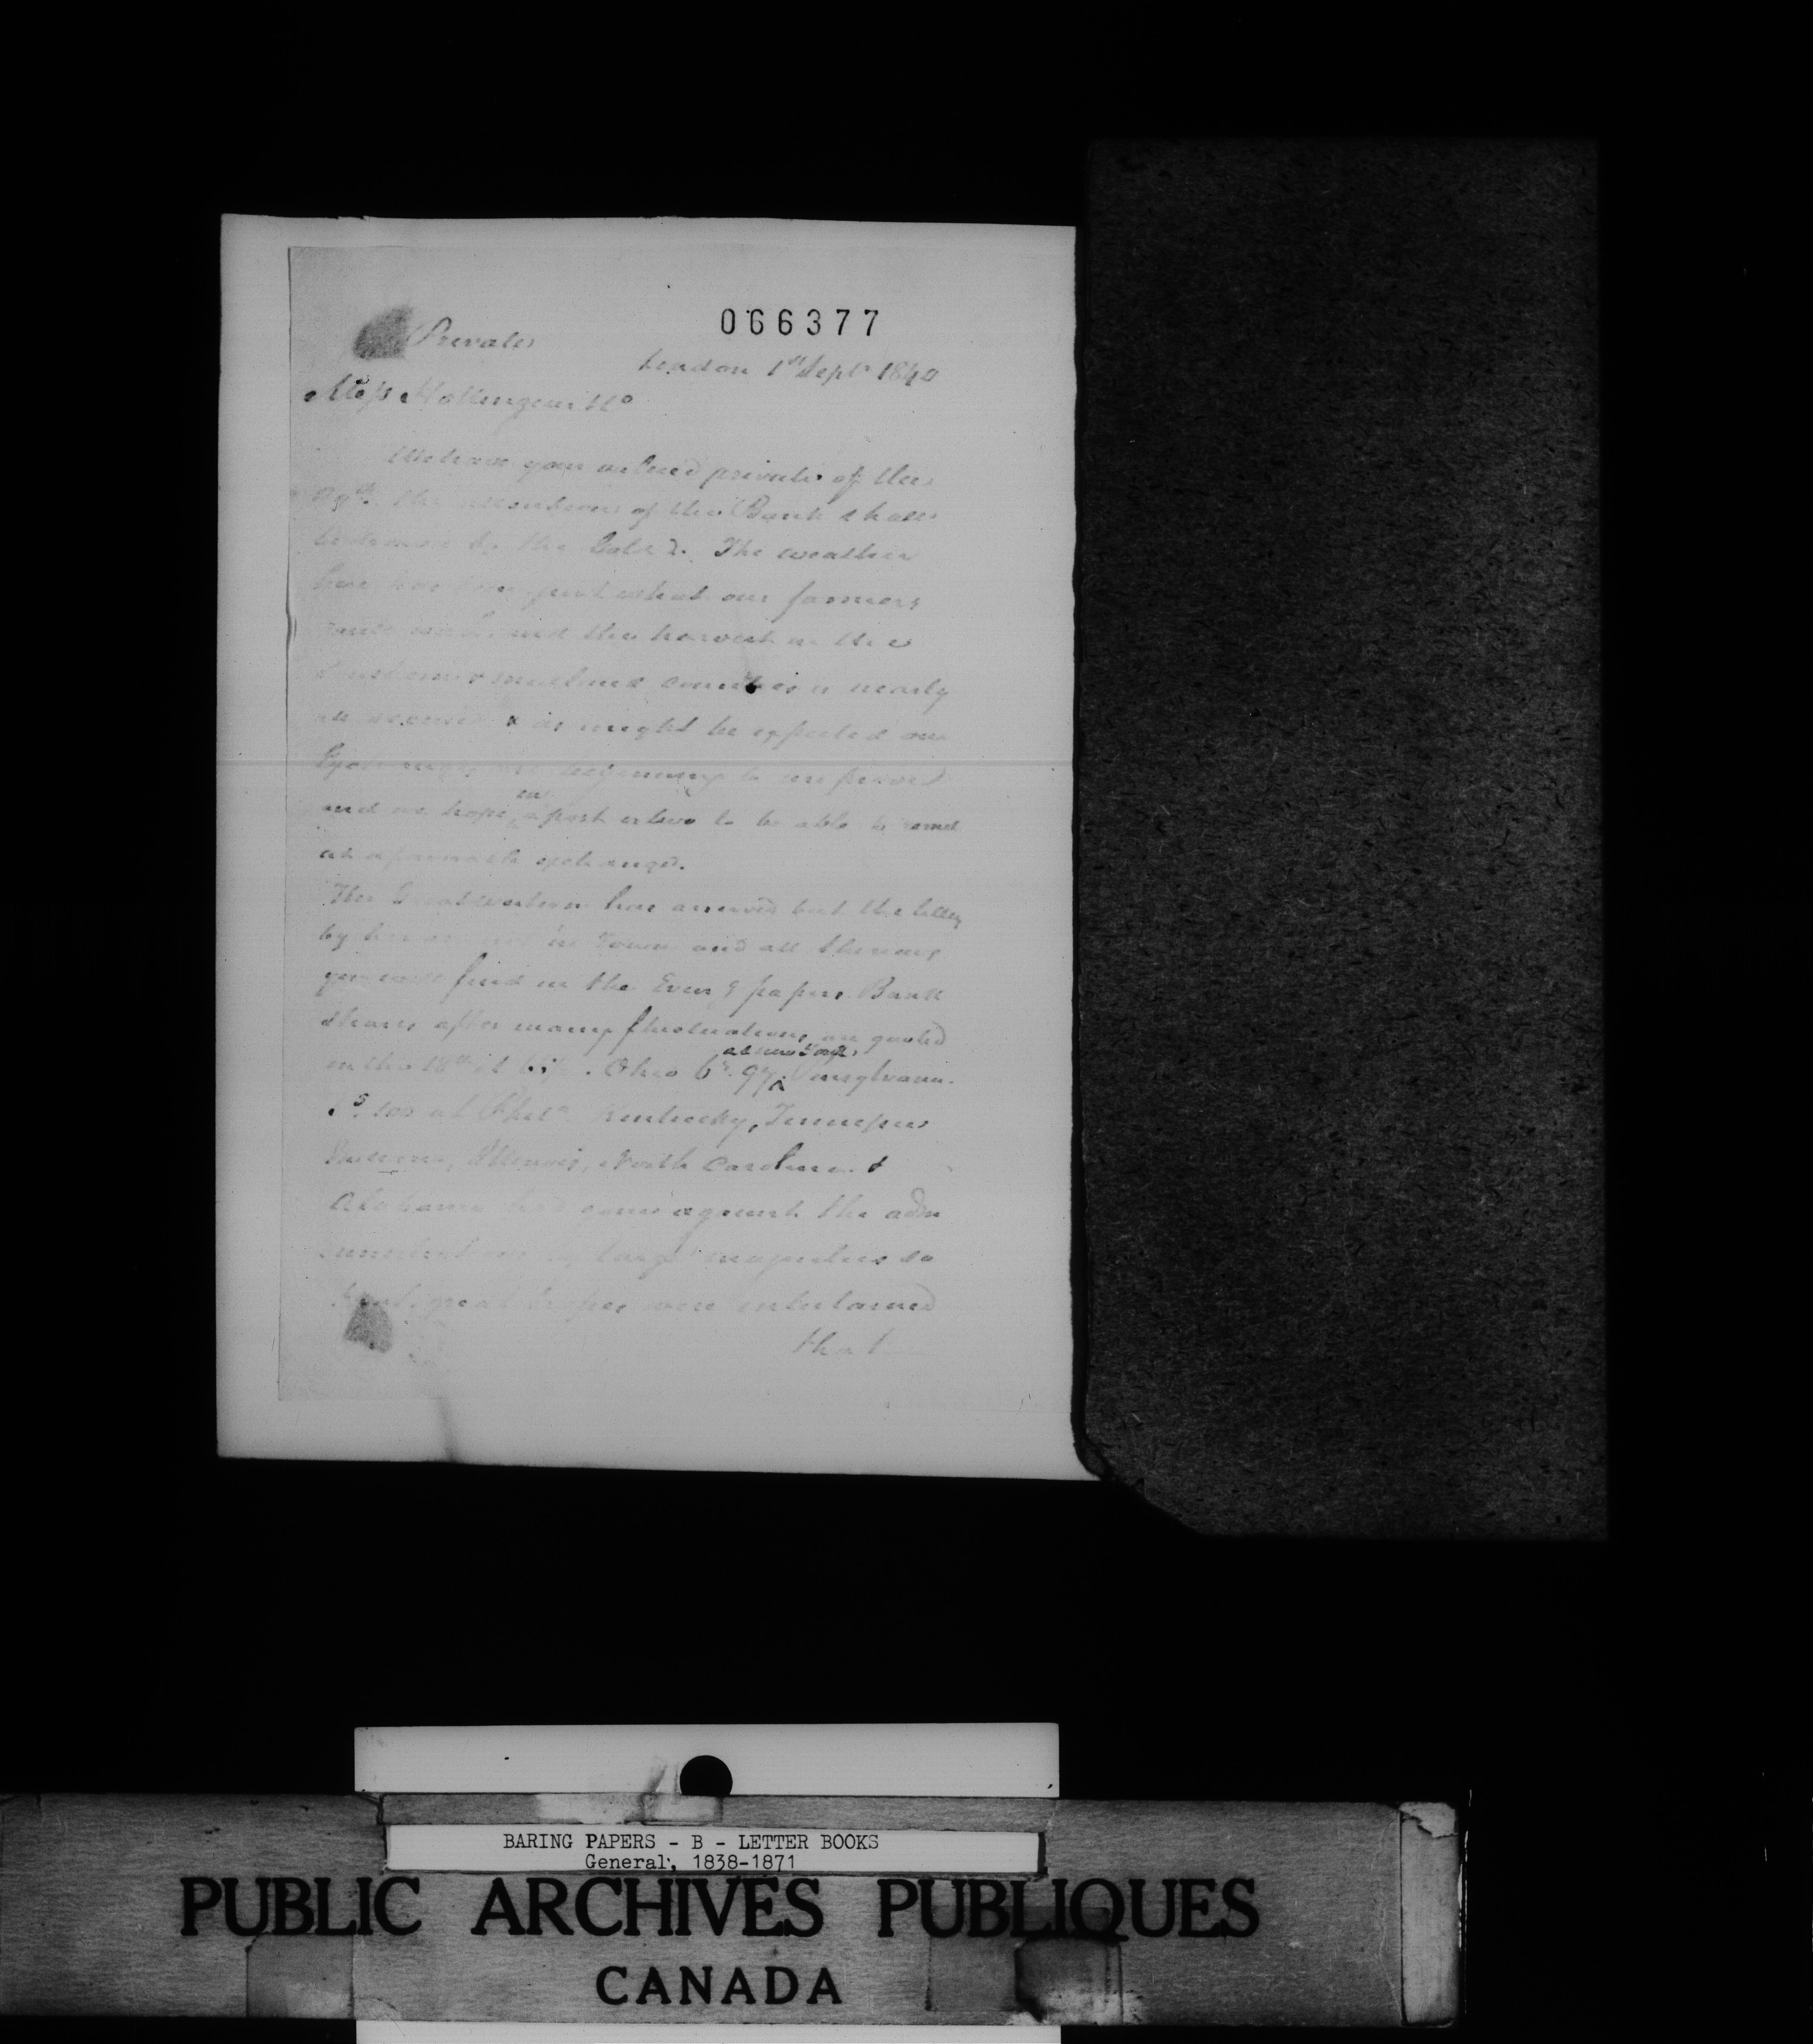 066377
Private
London 1st Septr 1840
Mess Hottinguer & Co
We have your valued private of the
29th. the intentions of the Bank shall
be to the . The weather
here has been just what our farmers
and the harvest in the
Southern & midland counties is nearly
all secured & as might be expected our
Exchanges are beginning to improve
and we hope in a post or two to be able to remit
at a exchange.
The Great Western has arrived but the letters
by her are not in Town and all the news
you will find in the Eveng papers. Bank
Shares after many fluctuations are quoted
on the 18th at . Ohio 6s. 97 at New York, Pennsylvania
5s. 100 at Phila Kentucky, Tennessee
Indiana, Illinois, North Carolina &
Alabama had gone against the adm
inistration by large majorities so
that great hopes were entertained
that
BARING PAPERS - B - LETTER BOOKS
General, 1838-1871
PUBLIC ARCHIVES PUBLIQUES
CANADA